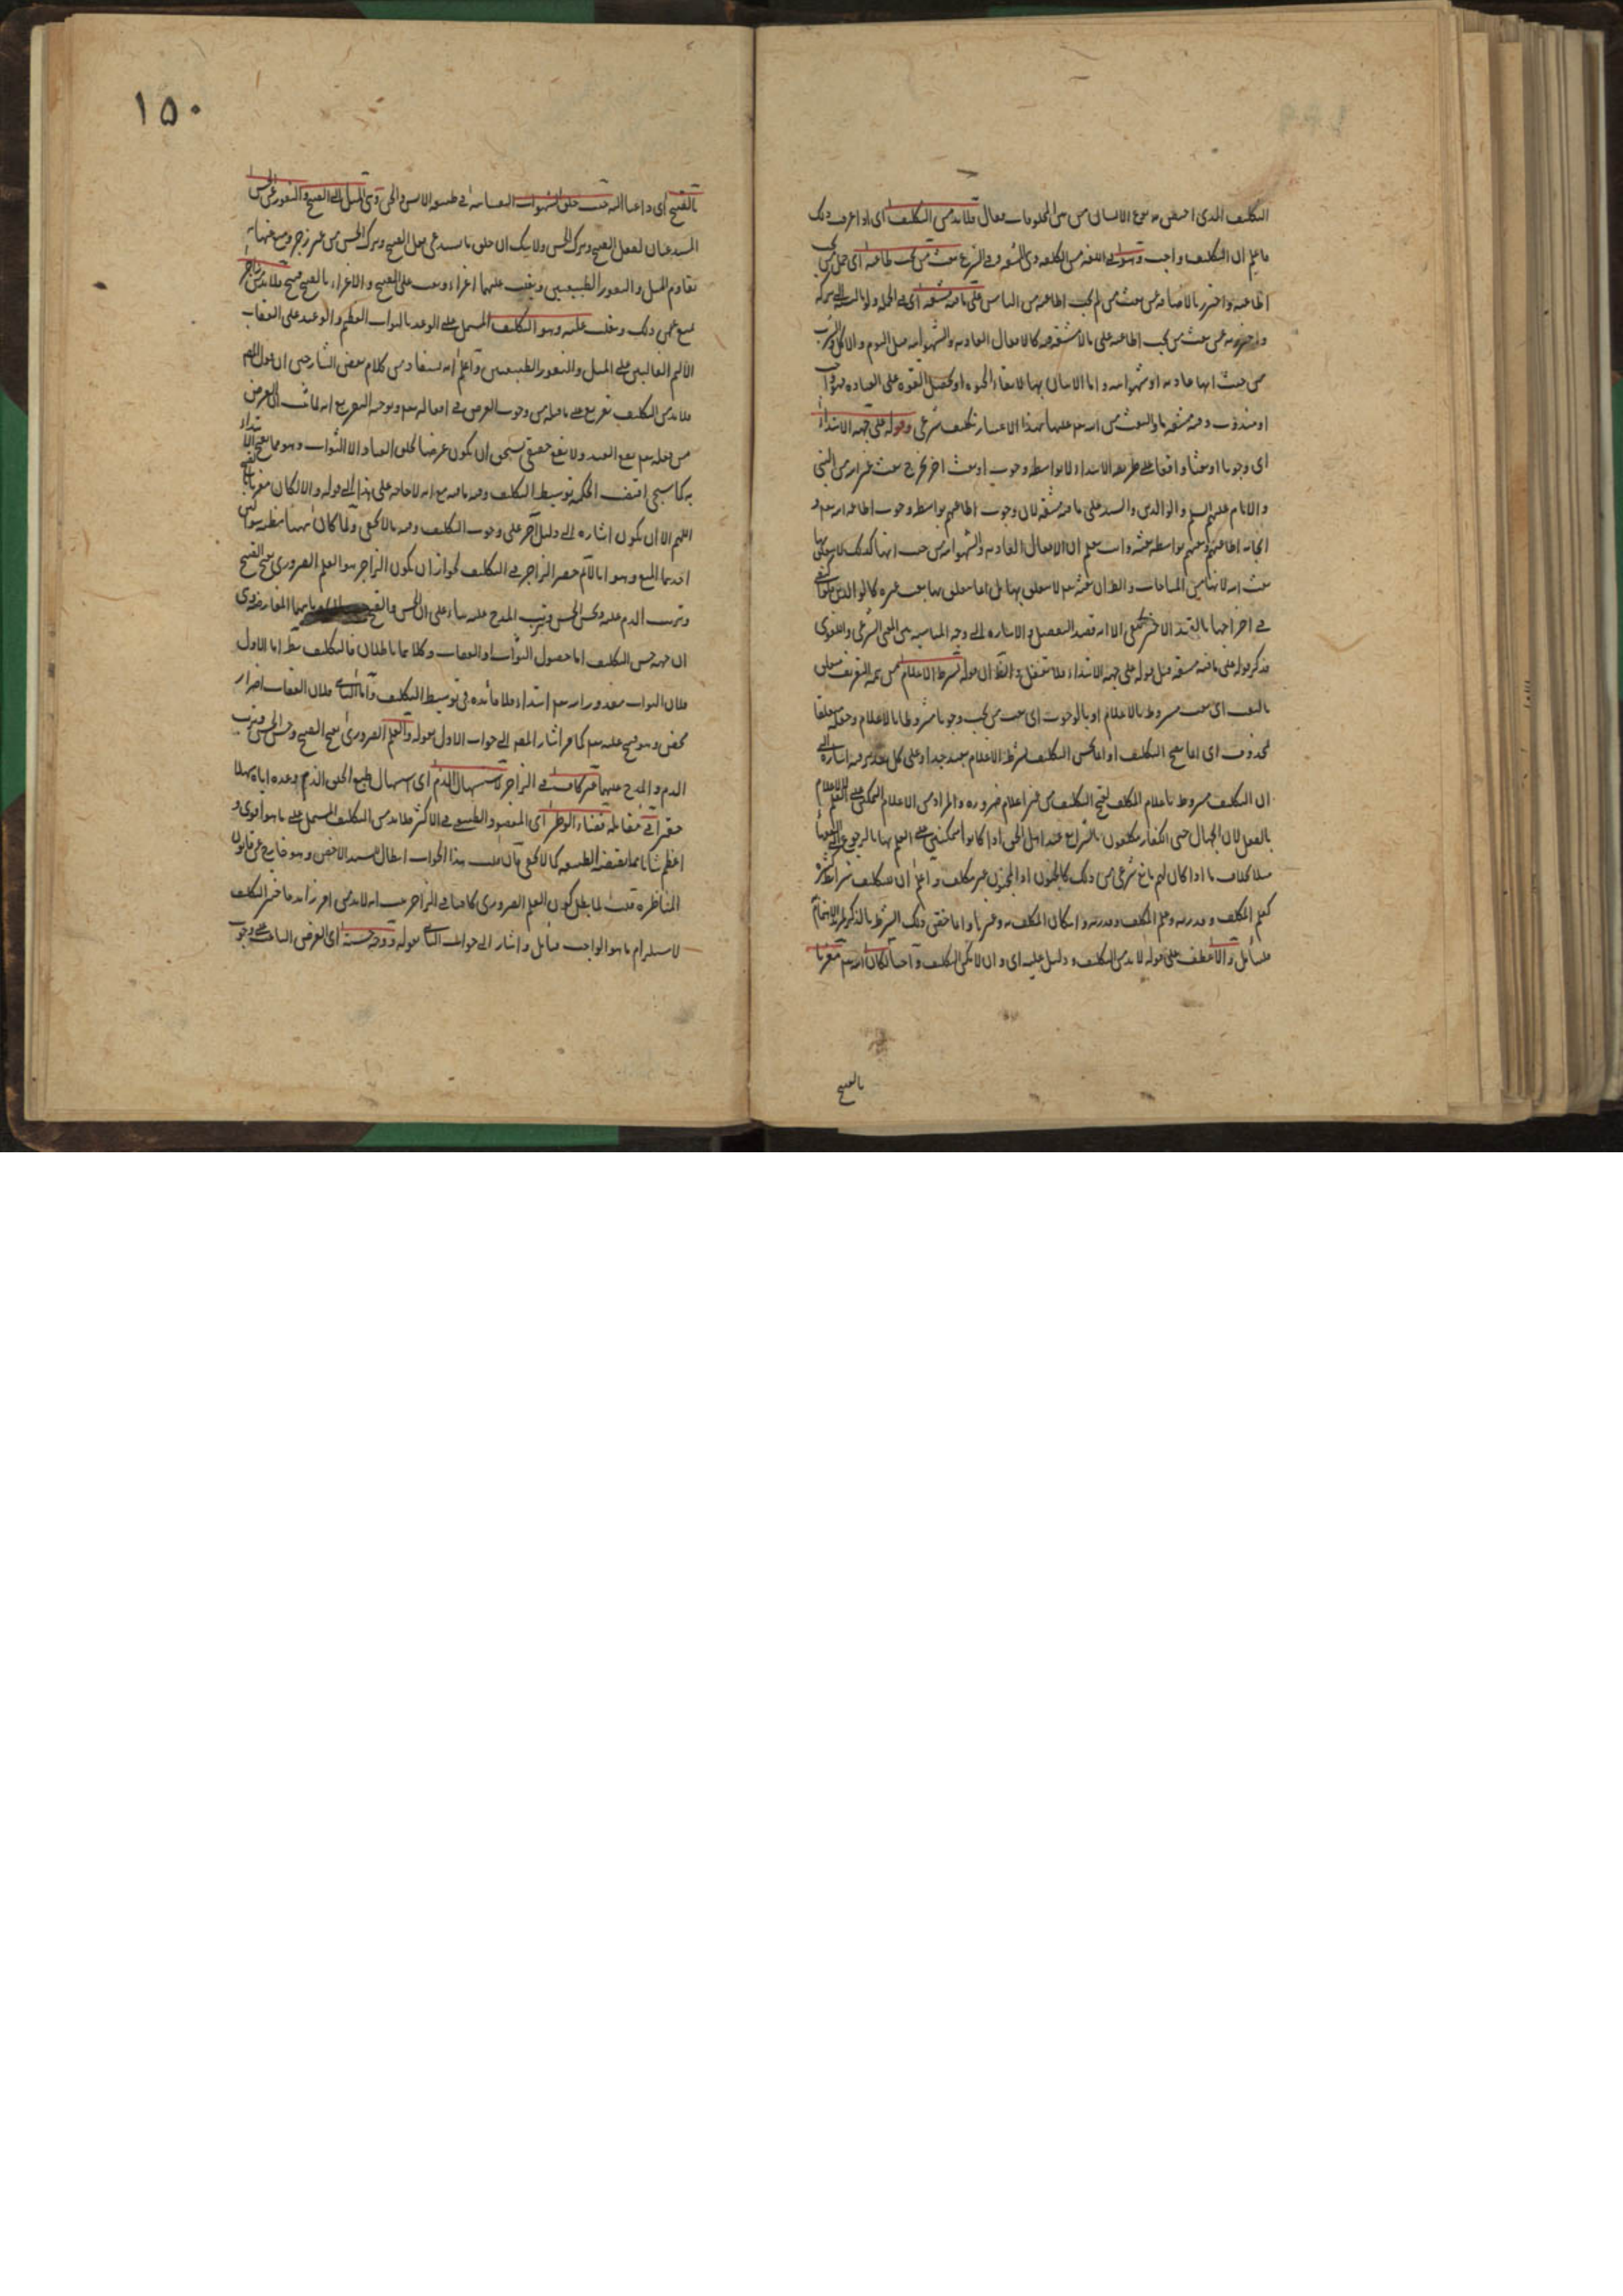 التكليف الذى اختص به نوع الانسان من بين المخلوقات فقال فلابد من التكليف اى اذا عرف ذلك
فاعلم ان التكليف واجب وهو فى اللغة من الكلفة وهى المشقة وفى الشرع بعث من يجب طاعته اى حمل من يجب
اطاعته واحترز بالاضافة عن بعث من لم يجب اطاعته من الناس على ما فيه مشقة اى فى الجملة ولو بالنسبة الى تركه
واحترز به عن بعث من يجب اطاعته على ما لا مشقة فيه كالافعال العادية والشهوانية مثل النوم والاكل والشرب
من حيث انها عادية او شهوانية واما الاتيان بها لابقاء الحيوة او لتحصيل القوة على العبادة فهو واجب
او مندوب وفيه مشقة ما والبعث من الله تعم عليها بهذا الاعتبار تكليف شرعى وقوله على جهة الابتداء
اى وجوبا او بعثا واقعا على طريقة الابتداء لا بواسطة وجوب او بعث اخر يخرج بعث غيره من النبى
والامام عليهم السلم والوالدين والسيد على ما فيه مشقة لان وجوب اطاعتهم بواسطة وجوب اطاعة الله تعم و
ايجابه اطاعتهم وبعثهم بواسطة بعثه وانت تعلم ان الافعال العادية والشهوانية من حيث انها كذلك لا يتعلق بها
بعث الله لانها من المباحات والظ ان بعثه تعم لا يتعلق بها بل انما يتعلق بها بعث غيره كالوالدين
فى اخراجها بالقيد الاخير الا انه قصد التفصيل والاشارة الى وجه المناسبة بين المعنى الشرعى واللغوى
فذكر قوله على ما فيه مشقة قبل قوله على جهة الابتداء فلا تغفل والظ ان قوله بشرط الاعلام من تتمة التعريف متعلق
بالبعث اى بعث مشروط بالاعلام او بالوجوب اى بعث من يجب وجوبا مشروطا بالاعلام وجعله متعلقا
بمحذوف اى انما يصح التكليف او انما يحسن التكليف بشرط الاعلام بعيد جدا وعلى كل تقدير فيه اشارة الى
ان التكليف مشروط باعلام المكلف لقبح التكليف من غير اعلام ضرورة والمراد من الاعلام التمكن على العلم لا الاعلام
بالفعل لان الجهال حتى الكفار مكلفون بالشرايع عند اهل الحق اذا كانوا متمكنين على العلم بها بالرجوع الى العلماء
مثلا بخلاف ما اذا كان لهم مانع شرعى من ذلك كالجنون اذ المجنون غير مكلف واعلم ان للتكليف شرائط كثيرة
كعلم المكلف وقدرته وعلم المكلف وقدرته وامكان المكلف به وغيرها وانما خص ذلك الشرط بالذكر لمزيد الاهتمام
فليتأمل والا عطف على قوله لابد من التكليف ودليل عليه اى وان لا يكن التكليف واجبا لكان الله تعم مغريا
بالقبيح
١٥٠
بالقبيح اى داعيا اليه حيث خلق الشهوات النفسانية فى طبيعة الانس والجن وهى الميل الى القبيح والنفور عن الحسن
المستدعيان لفعل القبيح وترك الحسن ولا شك ان خلق ما يستدعى فعل القبيح وترك الحسن من غير زجر ومنع عنها بما
يقاوم الميل والنفور الطبيعيين ويغلب عليهما اغراء وبعث على القبيح والاغراء بالقبيح قبيح فلابد من زاجر
يمنع عن ذلك ويغلب عليه وهو التكليف المشتمل على الوعد بالثواب العظيم والوعيد على العقاب
الاليم الغالبين على الميل والنفور الطبيعيين واعلم انه يستفاد من كلام بعض الشارحين ان قول المص
فلابد من التكليف تفريع على ما قبله من وجوب الغرض فى افعاله تعم وتوجيه التفريع انه لما ثبت ان الغرض
من فعله تعم نفع العبد ولا نفع حقيقى يستحق ان يكون غرضا لخلق العباد الا الثواب وهو مما يقبح الابتداء
به كما سيجئ اقتضت الحكمة توسيط التكليف وفيه ما فيه مع انه لا حاجة على هذا الى قوله والا لكان مغريا بالقبيح
اللهم الا ان يكون اشارة الى دليل آخر على وجوب التكليف وفيه ما لا يخفى ولما كان ههنا مظنة سؤالين
احدهما المنع وهو انا لانم حصر الزاجر فى التكليف لجواز ان يكون الزاجر هو العلم الضرورى بقبح القبيح
وترتب الذم عليه وحسن الحسن وترتب المدح عليه بناء على ان الحسن والقبح وثانيهما المعارضة وهى
ان جهة حسن التكليف اما حصول الثواب او العقاب وكلاهما باطلان فالتكليف بط اما الاول
فلان الثواب مقدور لله تعم ابتداء فلا فائدة فى توسيط التكليف واما الثانى فلان العقاب اضرار
محض وهو قبيح عليه تعم كما مر اشار المص الى جواب الاول بقوله والعلم الضرورى بقبح القبيح وحسن الحسن وترتب
الذم والمدح عليهما غير كاف فى الزاجر لاستسهال الذم اى استسهال طبع الخلق الذم وعده اياه سهلا
حقيرا فى مقابلة قضاء الوطر اى المقصود الطبيعى فى الاكثر فلابد من التكليف المشتمل على ما هو اقوى و
اعظم شانا مما يقتضيه الطبيعة كما لا يخفى فان قلت هذا الجواب ابطال للسند الاخص وهو خارج عن قانون
المناظرة قلت لما بطل كون العلم الضرورى كافيا فى الزاجر ثبت انه لابد من امر زائد فاختير التكليف
لاستلزامه ما هو الواجب فتأمل واشار الى جواب الثانى بقوله ووجه حسنه اى الغرض الباعث على وجوب